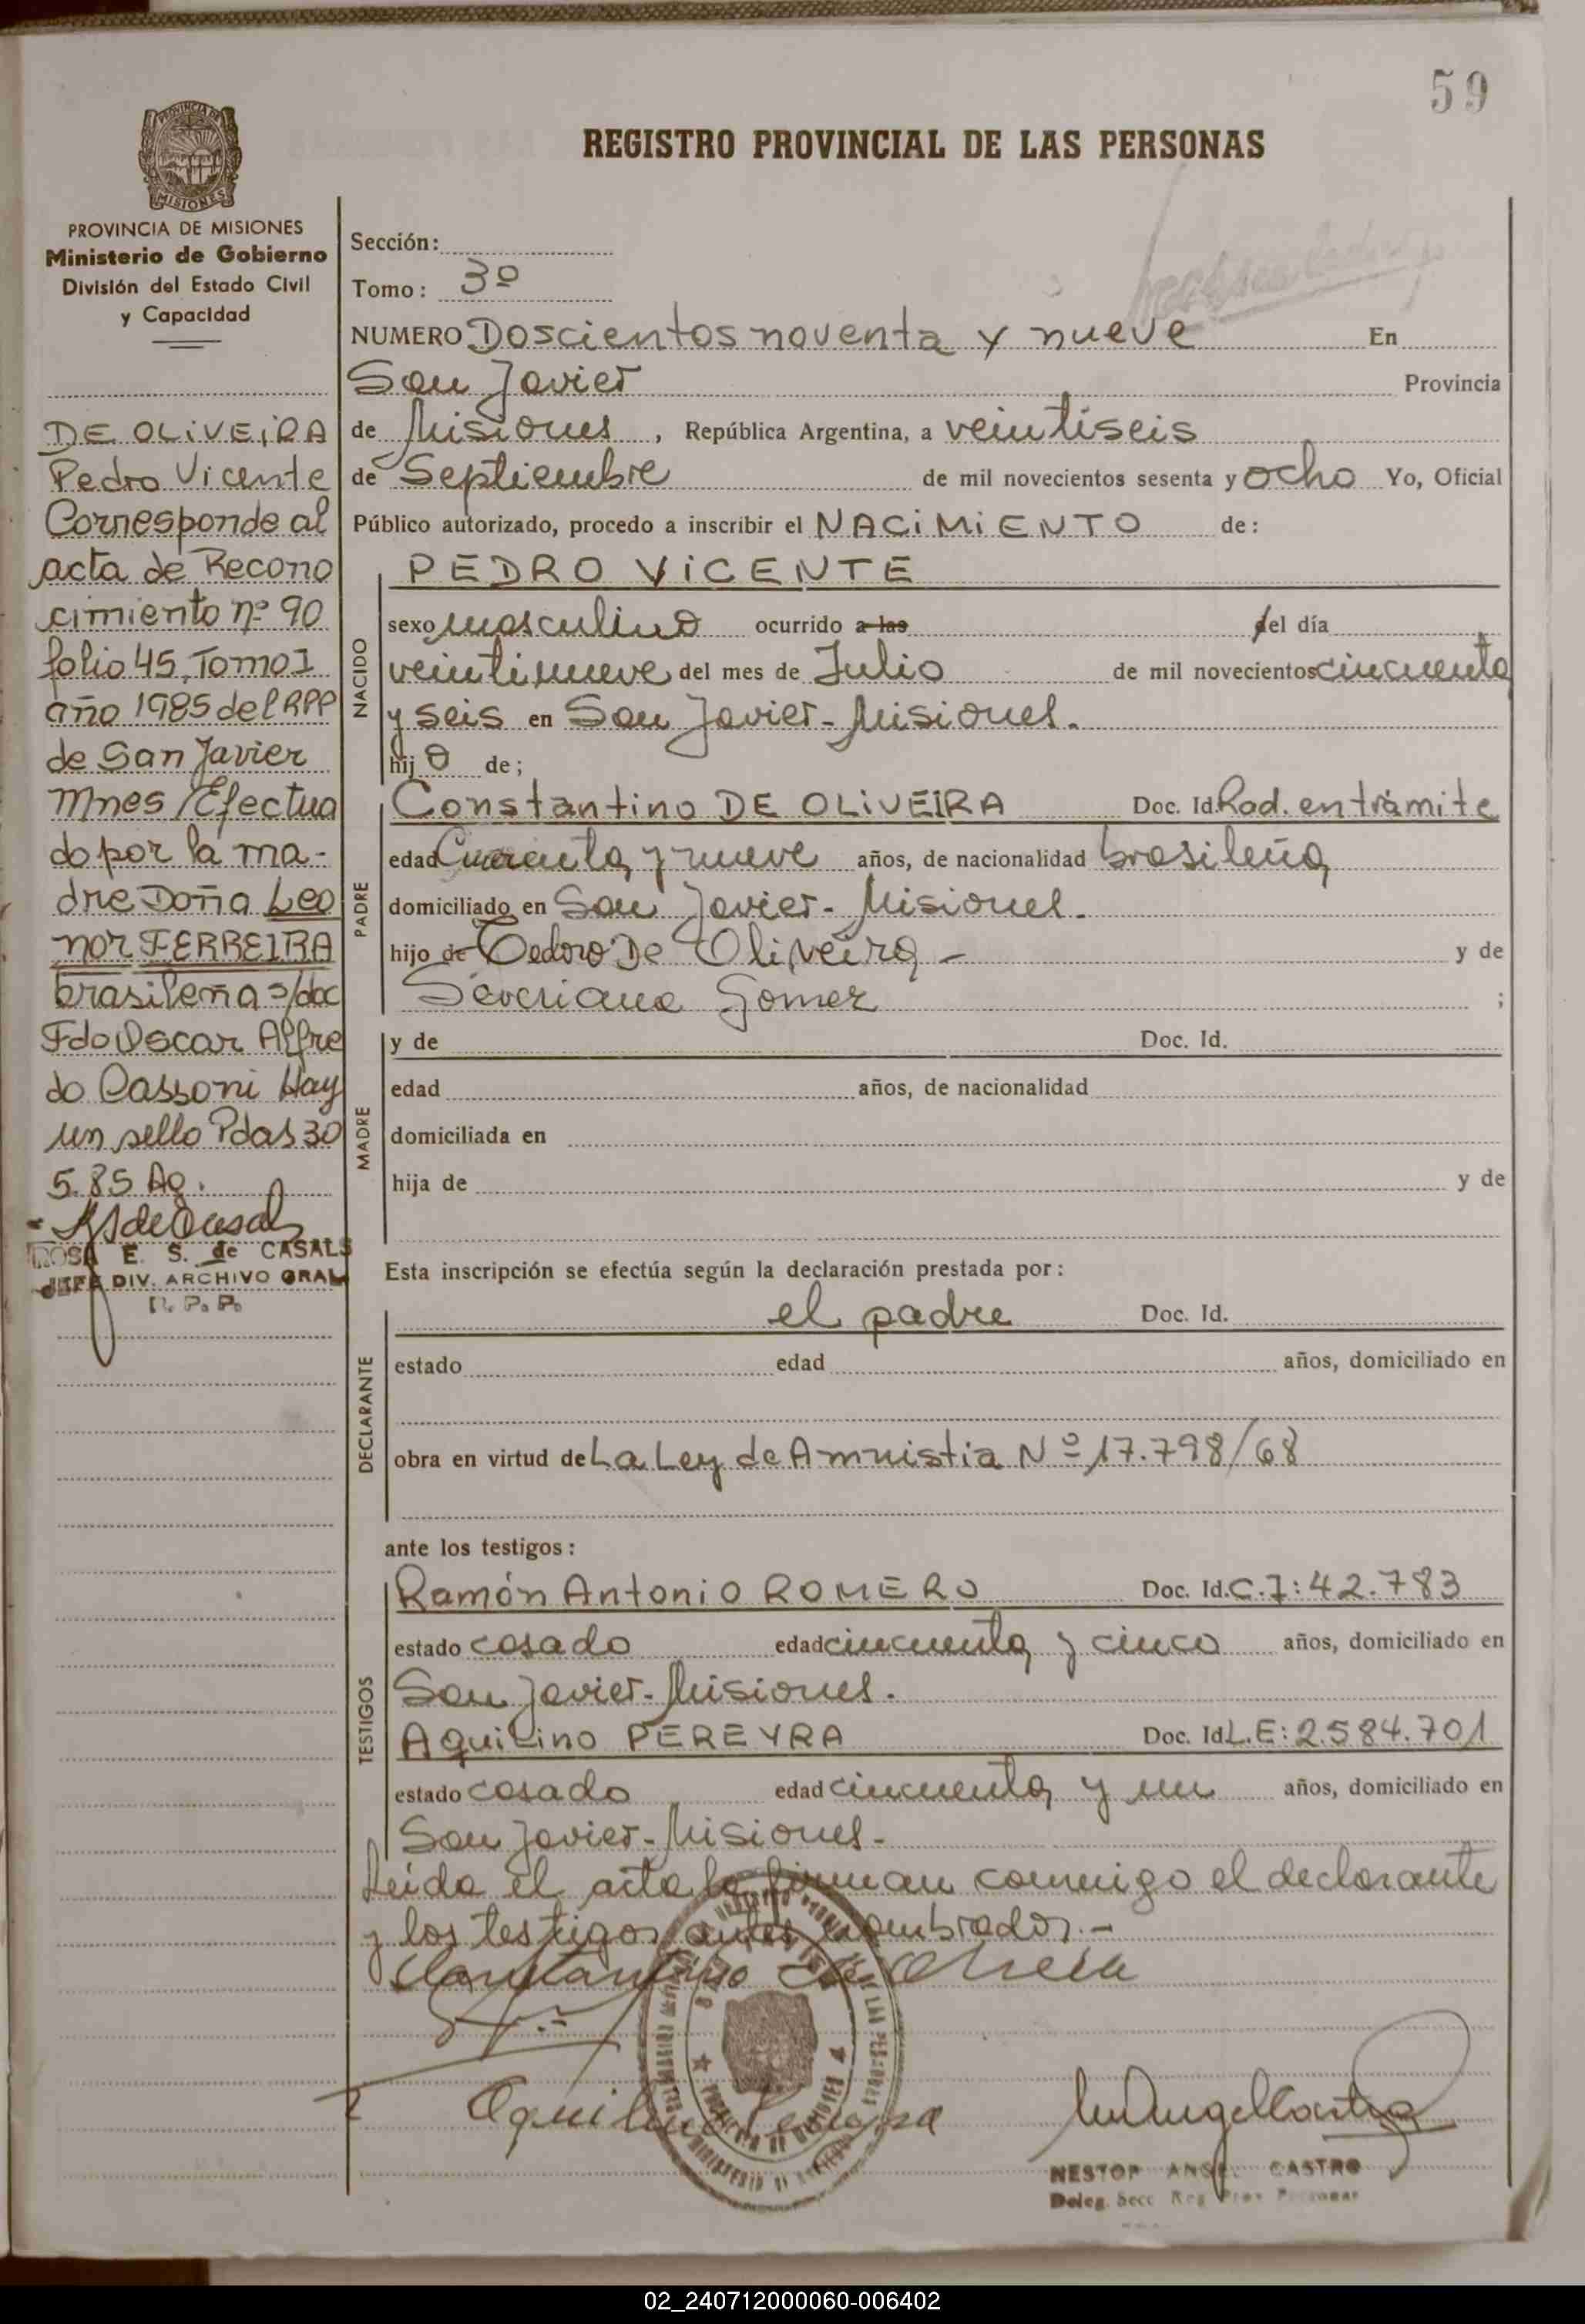 59
REGISTRO PROVINCIAL DE LAS PERSONAS
PROVINCIA DE MISIONES
Ministerio de Gobierno
División del Estado Civil
y Capacidad
DE OLIVEIRA
Pedro Vicente
Corresponde al
acta de Recono
cimiento nº 90
folio 45, Tomo I
año 1985 del RPP
de San Javier
Mnes/Efectua
do por la ma-
dre Doña Leo
nor FERREIRA
brasileña s/doc
Fdo Oscar Alfre
do Cassoni Hay
un sello Pdas 30
5.85 Ag.
ROSA E. S. de CASALS
JEFE DIV. ARCHIVO GRAL
R. P. P.
Sección:
Tomo: 3º
NUMERO Doscientos noventa y nueve En
San Javier Provincia
de Misiones, República Argentina, a veintiseis
de Septiembre de mil novecientos sesenta y ocho Yo, Oficial
Público autorizado, procedo a inscribir el NACIMIENTO de:
NACIDO
PEDRO VICENTE
sexo masculino ocurrido a las el día
veintinueve del mes de Julio de mil novecientos cincuenta
y seis en San Javier-Misiones.
hijo de;
PADRE
Constantino DE OLIVEIRA Doc. Id. Rad. en trámite
edad Cuarenta y nueve años, de nacionalidad brasileña
domiciliado en San Javier-Misiones.
hijo de Tedoro De Oliveira - y de
Severiana Gomez ;
MADRE
y de Doc. Id.
edad años, de nacionalidad
domiciliada en
hija de y de
Esta inscripción se efectúa según la declaración prestada por:
DECLARANTE
el padre Doc. Id.
estado edad años, domiciliado en
obra en virtud de La Ley de Amnistia Nº 17.798/68
ante los testigos:
TESTIGOS
Ramón Antonio ROMERO Doc. Id. C.I: 42.783
estado casado edad cincuenta y cinco años, domiciliado en
San Javier-Misiones.
Aquilino PEREYRA Doc. Id. L.E: 2.584.701
estado casado edad cincuenta y un años, domiciliado en
San Javier-Misiones-
Leida el acta la firman conmigo el declarante
y los testigos antes nombrados.-
Constantino de Oliveira
Aquilino Pereyra
NESTOR ANGEL CASTRO
Deleg. Secc Reg Prov Personas
02_240712000060-006402